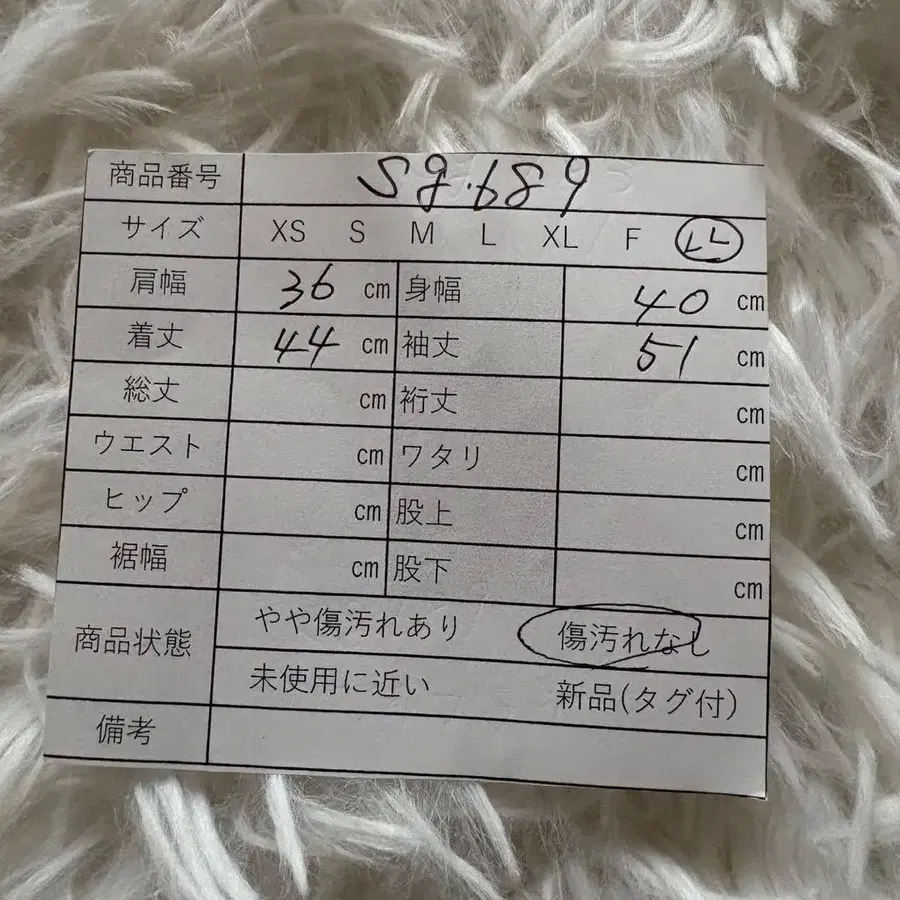 商品番号 sg.689
サイズ XS S M L XL F LL
肩幅 36 cm 身幅 40 cm
着丈 44 cm 袖丈 51 cm
総丈 cm 裄丈 cm
ウエスト cm ワタリ cm
ヒップ cm 股上 cm
裾幅 cm 股下 cm
商品状態 やや傷汚れあり 傷汚れなし
未使用に近い 新品(タグ付)
備考